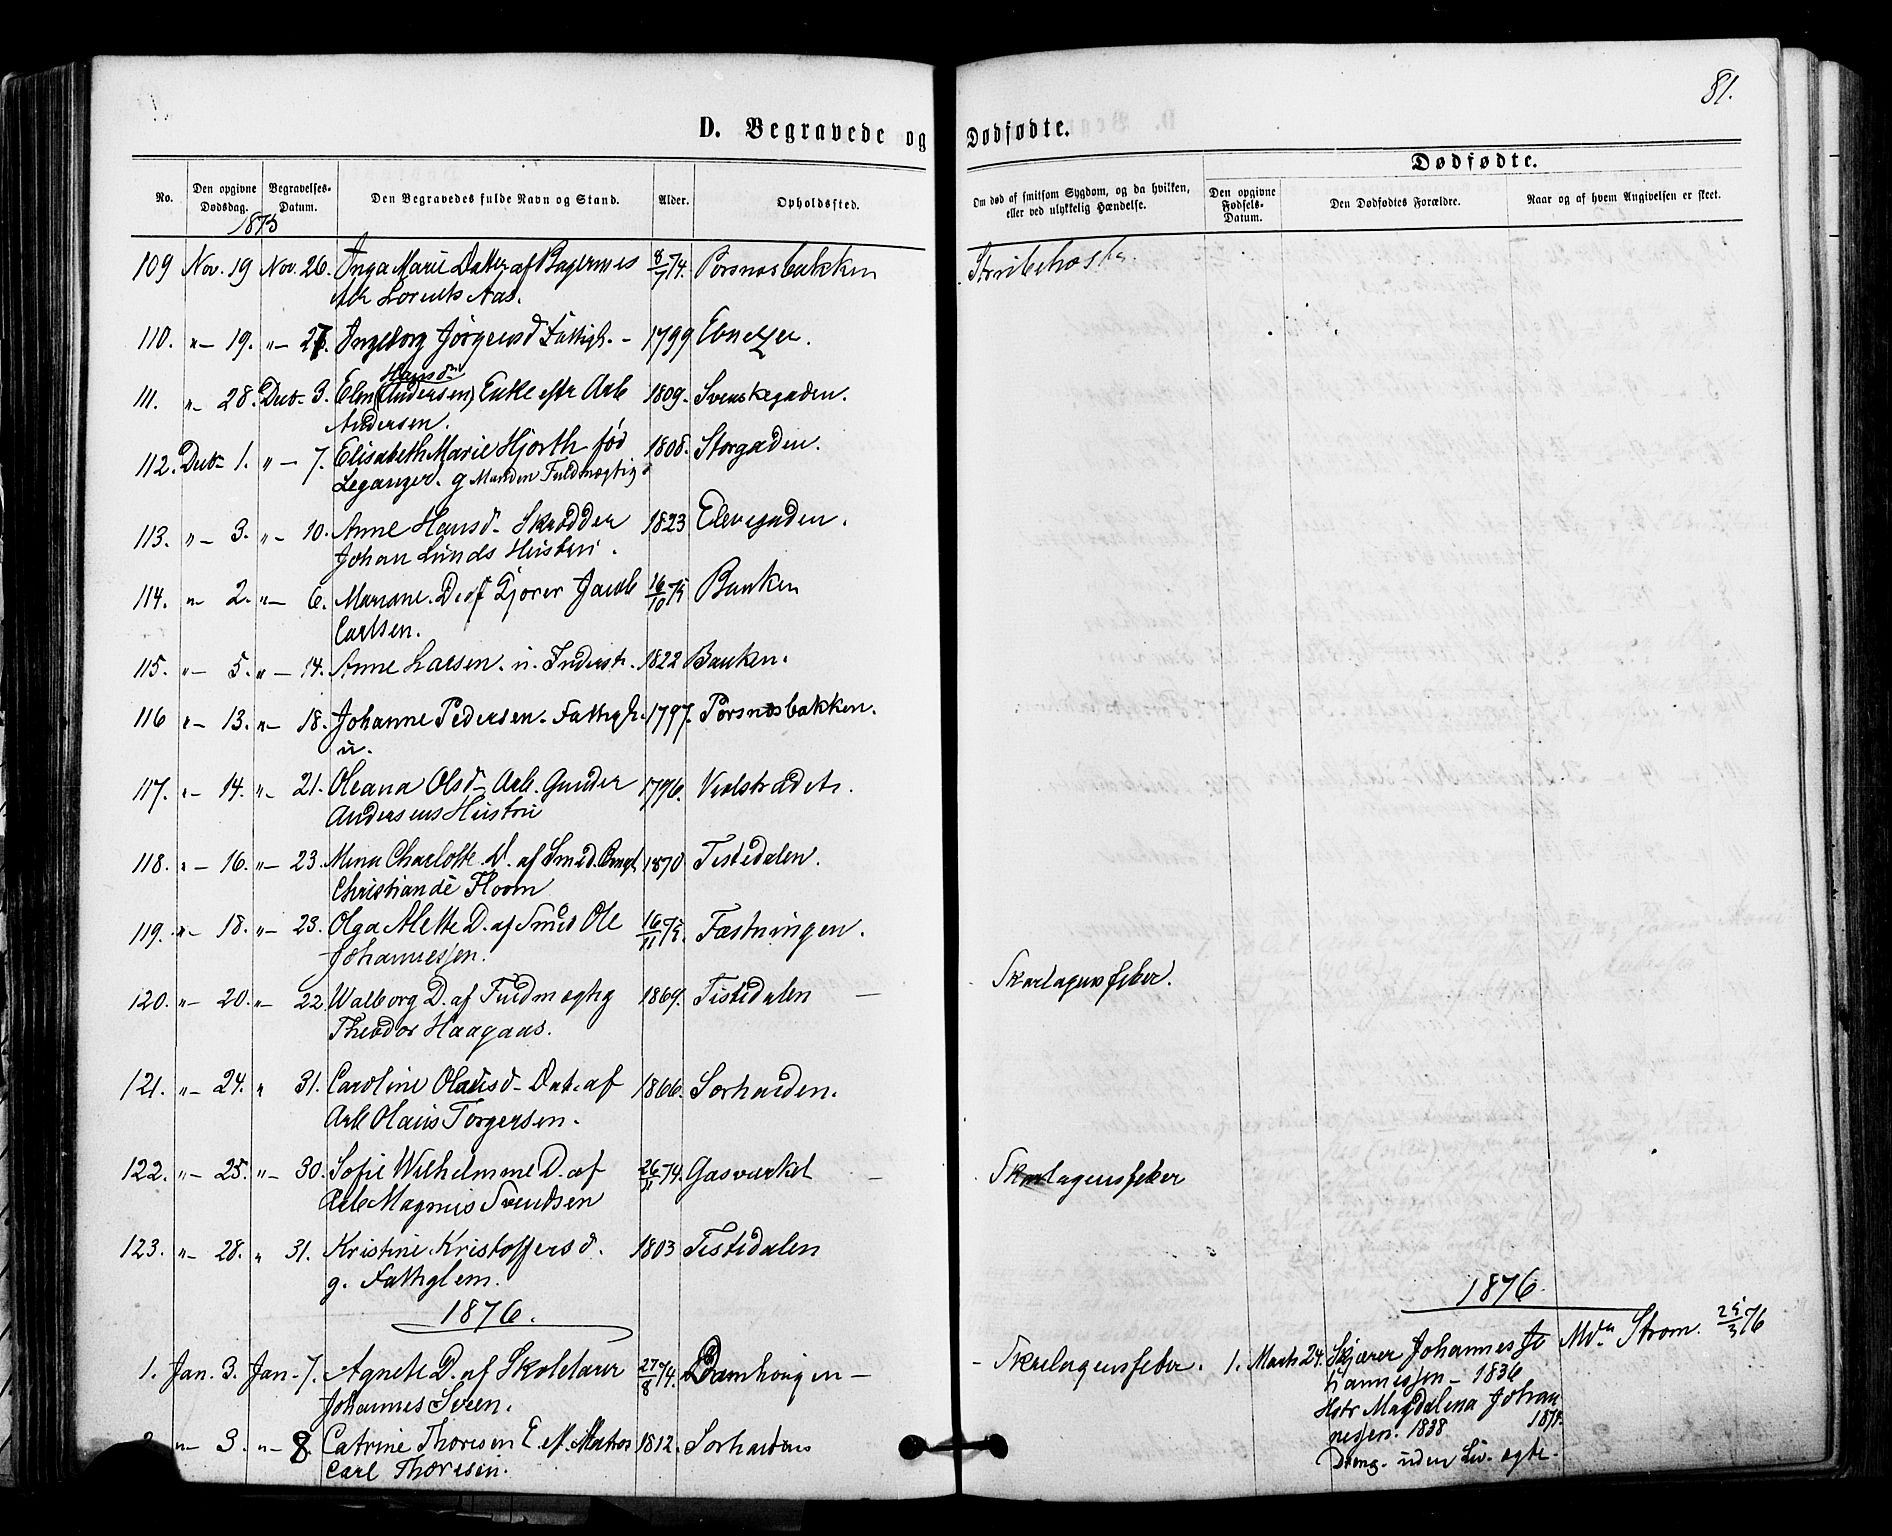 81.
D. Begravede og Dødfødte.
Dødfødte.
No.
Den opgivne Dødsdag.
Begravelses-Datum.
Den Begravedes fulde Navn og Stand.
Alder.
Opholdssted.
Om død af smitsom Sygdom, og da hvilken, eller ved ulykkelig Hændelse.
Den opgivne Fødsels-Datum.
Den Dødfødtes Forældre.
Naar og af hvem Angivelsen er skeet.
1875
109 Nov. 19 Nov. 26. Inga Marie Datter af 8/7 74. Porsnæsbakken Strubehoste
Lorents Aas.
110. " — 19. " — 27. Ingeborg Jørgensd Fattigl. — 1799 Ebnezer.
Hansd
111. " — 28. Decb 3. Elen (Andersen) Enke eftr Arb 1809. Svenskegaden.
Andersen.
112. Decb 1. " — 7. Elisabeth Marie Hjorth fød 1808. Storgaden.
Leganger. g Manden Fuldmægtig
113. " — 3. " — 10. Anne Hansd — Skrædder 1823 Elevegaden.
Johan Lunds Hustru.
114. " 2. " — 6. Mariane. D. af Kjører Jacob 16/10 75 Banken
Carlsen.
115. " — 5. " — 14. Anne Larsen. u. Inderst. 1822 Banken.
116 " — 13. " — 18. Johanne Pedersen. Fattigl. 1797. Porsnæsbakken.
u.
117. " — 14. " 21. Oleana Olsd — Arb. Gunder 1796. Vedstrædet.
Andersens Hustru
118. " — 16. " — 23. Mina Charlotte D. af Smed 1870 Tistedalen.
Christian Floom
119. " — 18. " — 23. Olga Alette D. af Smed Ole 16/11 75. Fæstningen.
Johannesen.
120. " — 20. " 22. Walborg D. af Fuldmægtig 1869. Tistedalen — Skarlagensfeber.
Theodor Haagaas.
121. " — 24. " 31. Caroline Olausd — Dat. af 1866. Sørhalden.
Arb Olaus Torgersen.
122. " — 25. " — 30. Sofie Wilhelmine D. af 26/11 74. Gasværket — Skarlagensfeber
Arb Magnus Svendsen
123. " — 28. " 31. Kristine Kristoffersd. 1803 Tistedalen
g. Fattiglem.
1876.
1876.
1. Jan. 3. Jan. 7. Agnete D. af Skolelærer 27/8 74. Damhaugen — Skarlagensfeber. 1. Marts 24. Skjærer Johannes Jo Strøm. 25/3 76
Johannes Sveen. hannessen — 1836
Hstr Magdalena Johan
" — 3. " — 8. Catrine Thoresen E. ef. Matros 1812. Sørhalden nesen. 1838
Carl Thoresen. Dreng. uden Liv. ægte.